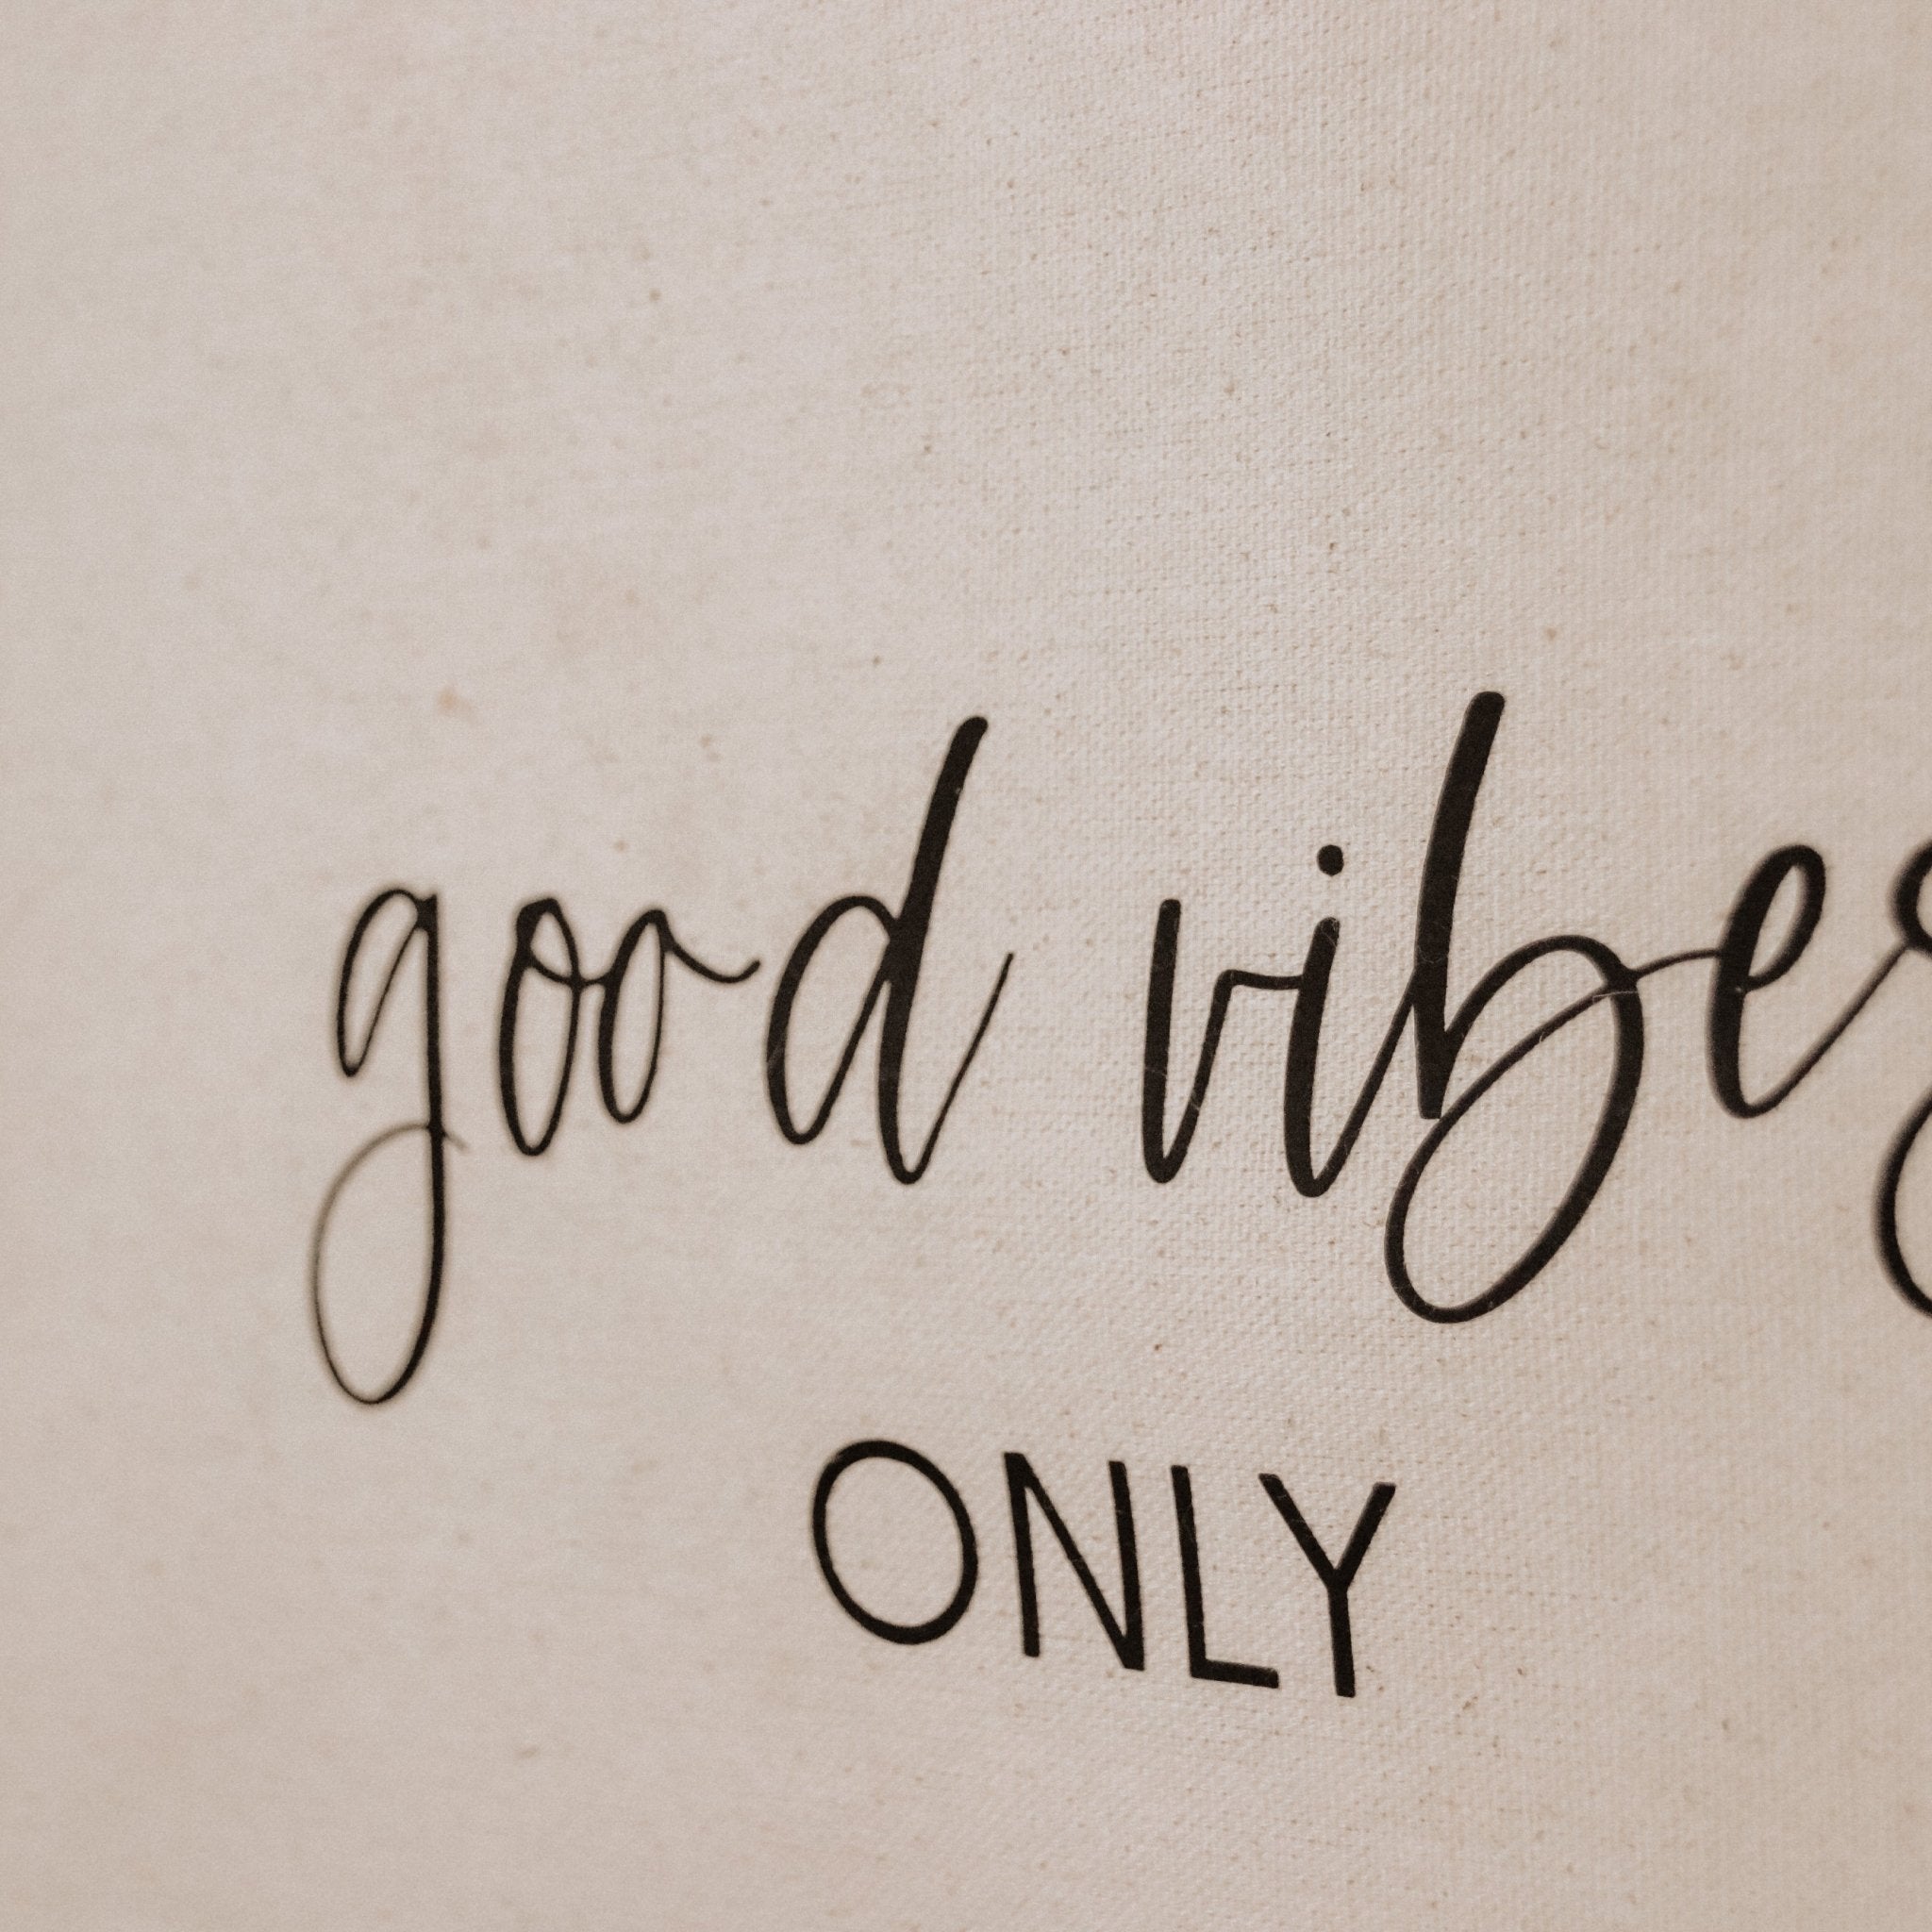 good vibes
ONLY